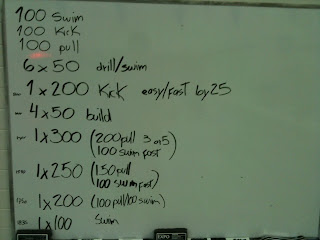 100 swim
100 Kick
100 pull
6 x 50 drill/swim
1 x 200 Kick easy/fast by 25
4 x 50 build
1 x 300 (200 pull 3 or 5
100 swim fast)
1 x 250 (150 pull
100 swim fast)
1 x 200 (100 pull/100 swim)
1 x 100 Swim
EXPO